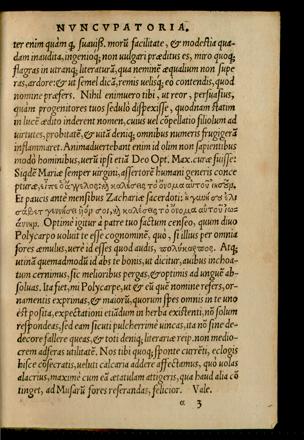 NVNCVPATORIA.
ter enim quám q, suauiß. morũ facilitate, & modestia qua-
dam inaudita, ingenioq; non uulgari præditus es, miro quoq;
flagras in utranq; literaturã, qua neminẽ æqualium non supe
ras, ardore: & ut semel dicã, remis uelisq; eò contendis, quod
nomine præfers. Nihil enimuero tibi, ut reor, persuasius,
quàm progenitores tuos sedulò dispexisse, quodnam statim
in lucẽ ædito inderent nomen, cuius uel cõpellatio filiolum ad
uirtutes, probitatẽ, & uitã deniq; omnibus numeris frugigerã
inflammaret. Animaduertebant enim id olim non sapientibus
modò hominibus, uerù ipsi etiã Deo Opt. Max. curæ fuisse:
Siqdẽ Mariæ semper uirgini, assertorẽ humani generis conce
pturæ, εἶπε ὁ ἄγγελος, κὴ καλέσεις τὸ ὄνομα αὐτοῦ ἰησοῦν.
Et paucis antè mensibus Zachariæ sacerdoti: ἡ γυνή σου ἐλι
σάβετ γεννήσει ἡόν σοι, κὴ καλέσεις τὸ ὄνομα αὐτοῦ ἰωά
άννην. Optimè igitur à patre tuo factum censeo, quum duo
Polycarpo uoluit te esse cognominẽ, quò, si illius per omnia
fores æmulus, uerè id esses quod audis, πολύκαρπος. Atq;
utinã quemadmodũ id abs te bonis, ut dicitur, auibus inchoa-
tum cernimus, sic melioribus pergas, & optimis ad unguẽ ab-
soluas. Ita fiet, mi Polycarpe, ut & eũ quẽ nomine refers, or-
namentis exprimas, & maiorũ, quorum spes omnis in te uno
est posita, expectationi etiãdum in herba existenti, nõ solum
respondeas, sed eam sicuti pulcherrimè uincas, ita nõ sine de-
decore fallere queas, & toti deniq; literariæ reip. non medio-
crem adferas utilitatẽ. Nos tibi quoq; sponte currẽti, eclogis
hisce cõsecratis, ueluti calcaria addere affectamus, quò uolas
alacrius, maximè cum eã ætatulam attigeris, qua haud alia cõ
tinget, ad Musarũ fores reserandas, felicior. Vale.
α 3